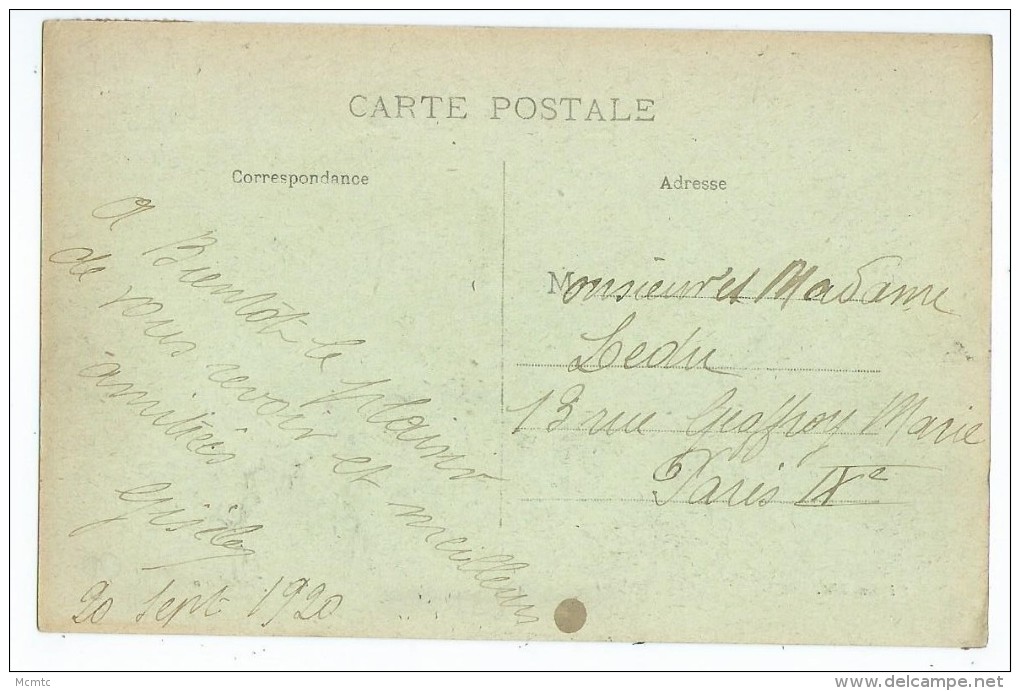 CARTE POSTALE
Correspondance
a Bientôt le plaisir
de vous revoir et meilleurs
amitiés
20 Sept 1920
Adresse
Monsieur et Madame
Ledu
13 rue Geoffroy Marie
Paris IXe
Mcmtc
delcampe.net